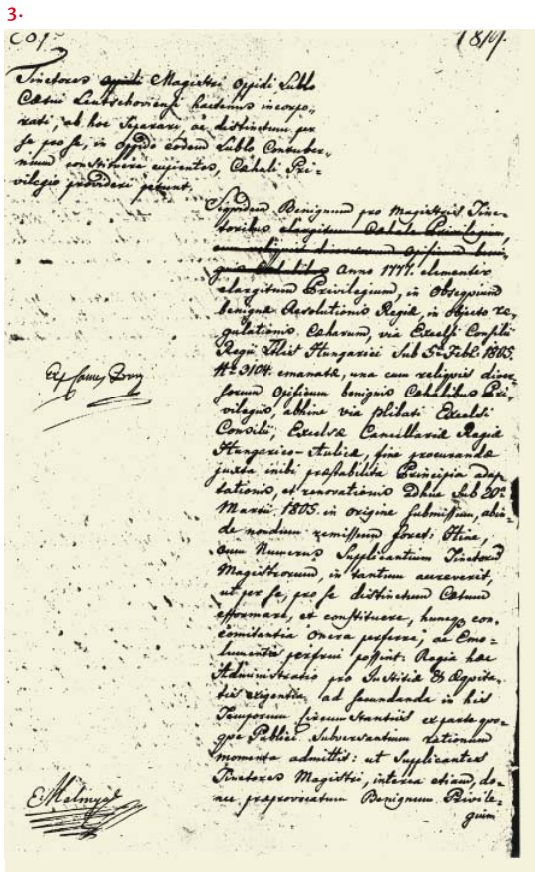 3.
1819.
Tinctores oppidi Magistri Oppidi Lublo
Cætui Leutschoviensi hactenus incorpo-
rati, ab hoc separari, ac distinctum per
se pro se, in Oppido eodem Lublo Contuber-
nium constituere cupientes, Cæhali Pri-
vilegio provideri petunt.
Siquidem Benignum pro Magistris Tinc-
toribus elargitum Cæhale Privilegium,
Anno 1777. clementer
elargitum Privilegium, in Obsequium
benignæ Resolutionis Regiæ, in objecto re-
gulationis Cæharum, via Excelsi Consilii
Regii Hungarici Sub 5a Febr. 1805.
No 3104. emanatæ, una cum reliquis diver-
sorum Opificum benignis Cæhalibus Pri-
vilegiis, abhinc via Excelsi
Consilii, Excelsæ Cancellariæ Regiæ
Hungarico-Aulicæ, fine procurandæ
juxta inibi præstabilita Principia adap-
tationis, et renovationis adhuc Sub 20a
Martii 1805. in origine submissum, abin-
de nondum remissum foret: Hinc,
cum Numerus Supplicantium Tinctorum
Magistrorum, in tantum accreverit,
ut per se, pro se distinctum Cætum
efformare, et constituere, hunc con-
comitantia Onera perferre, ac Emo-
lumentis perfrui possint: Regia hæc
Administratio pro Justitiæ & Æquita-
tis exigentia, ad secundanda in his
Temporum circumstantiis ex parte quo-
que Publici subversantium rationum
momenta admittit: ut Supplicantes
Tinctores Magistri, interea etiam, do-
nec præprovocatum Benignum Privile-
gium